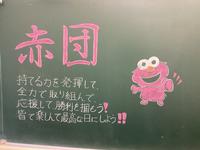 赤団
持てる力を発揮して、
全力で取り組んで、
応援して、勝利を掴もう!
皆で楽しんで最高な日にしよう!!